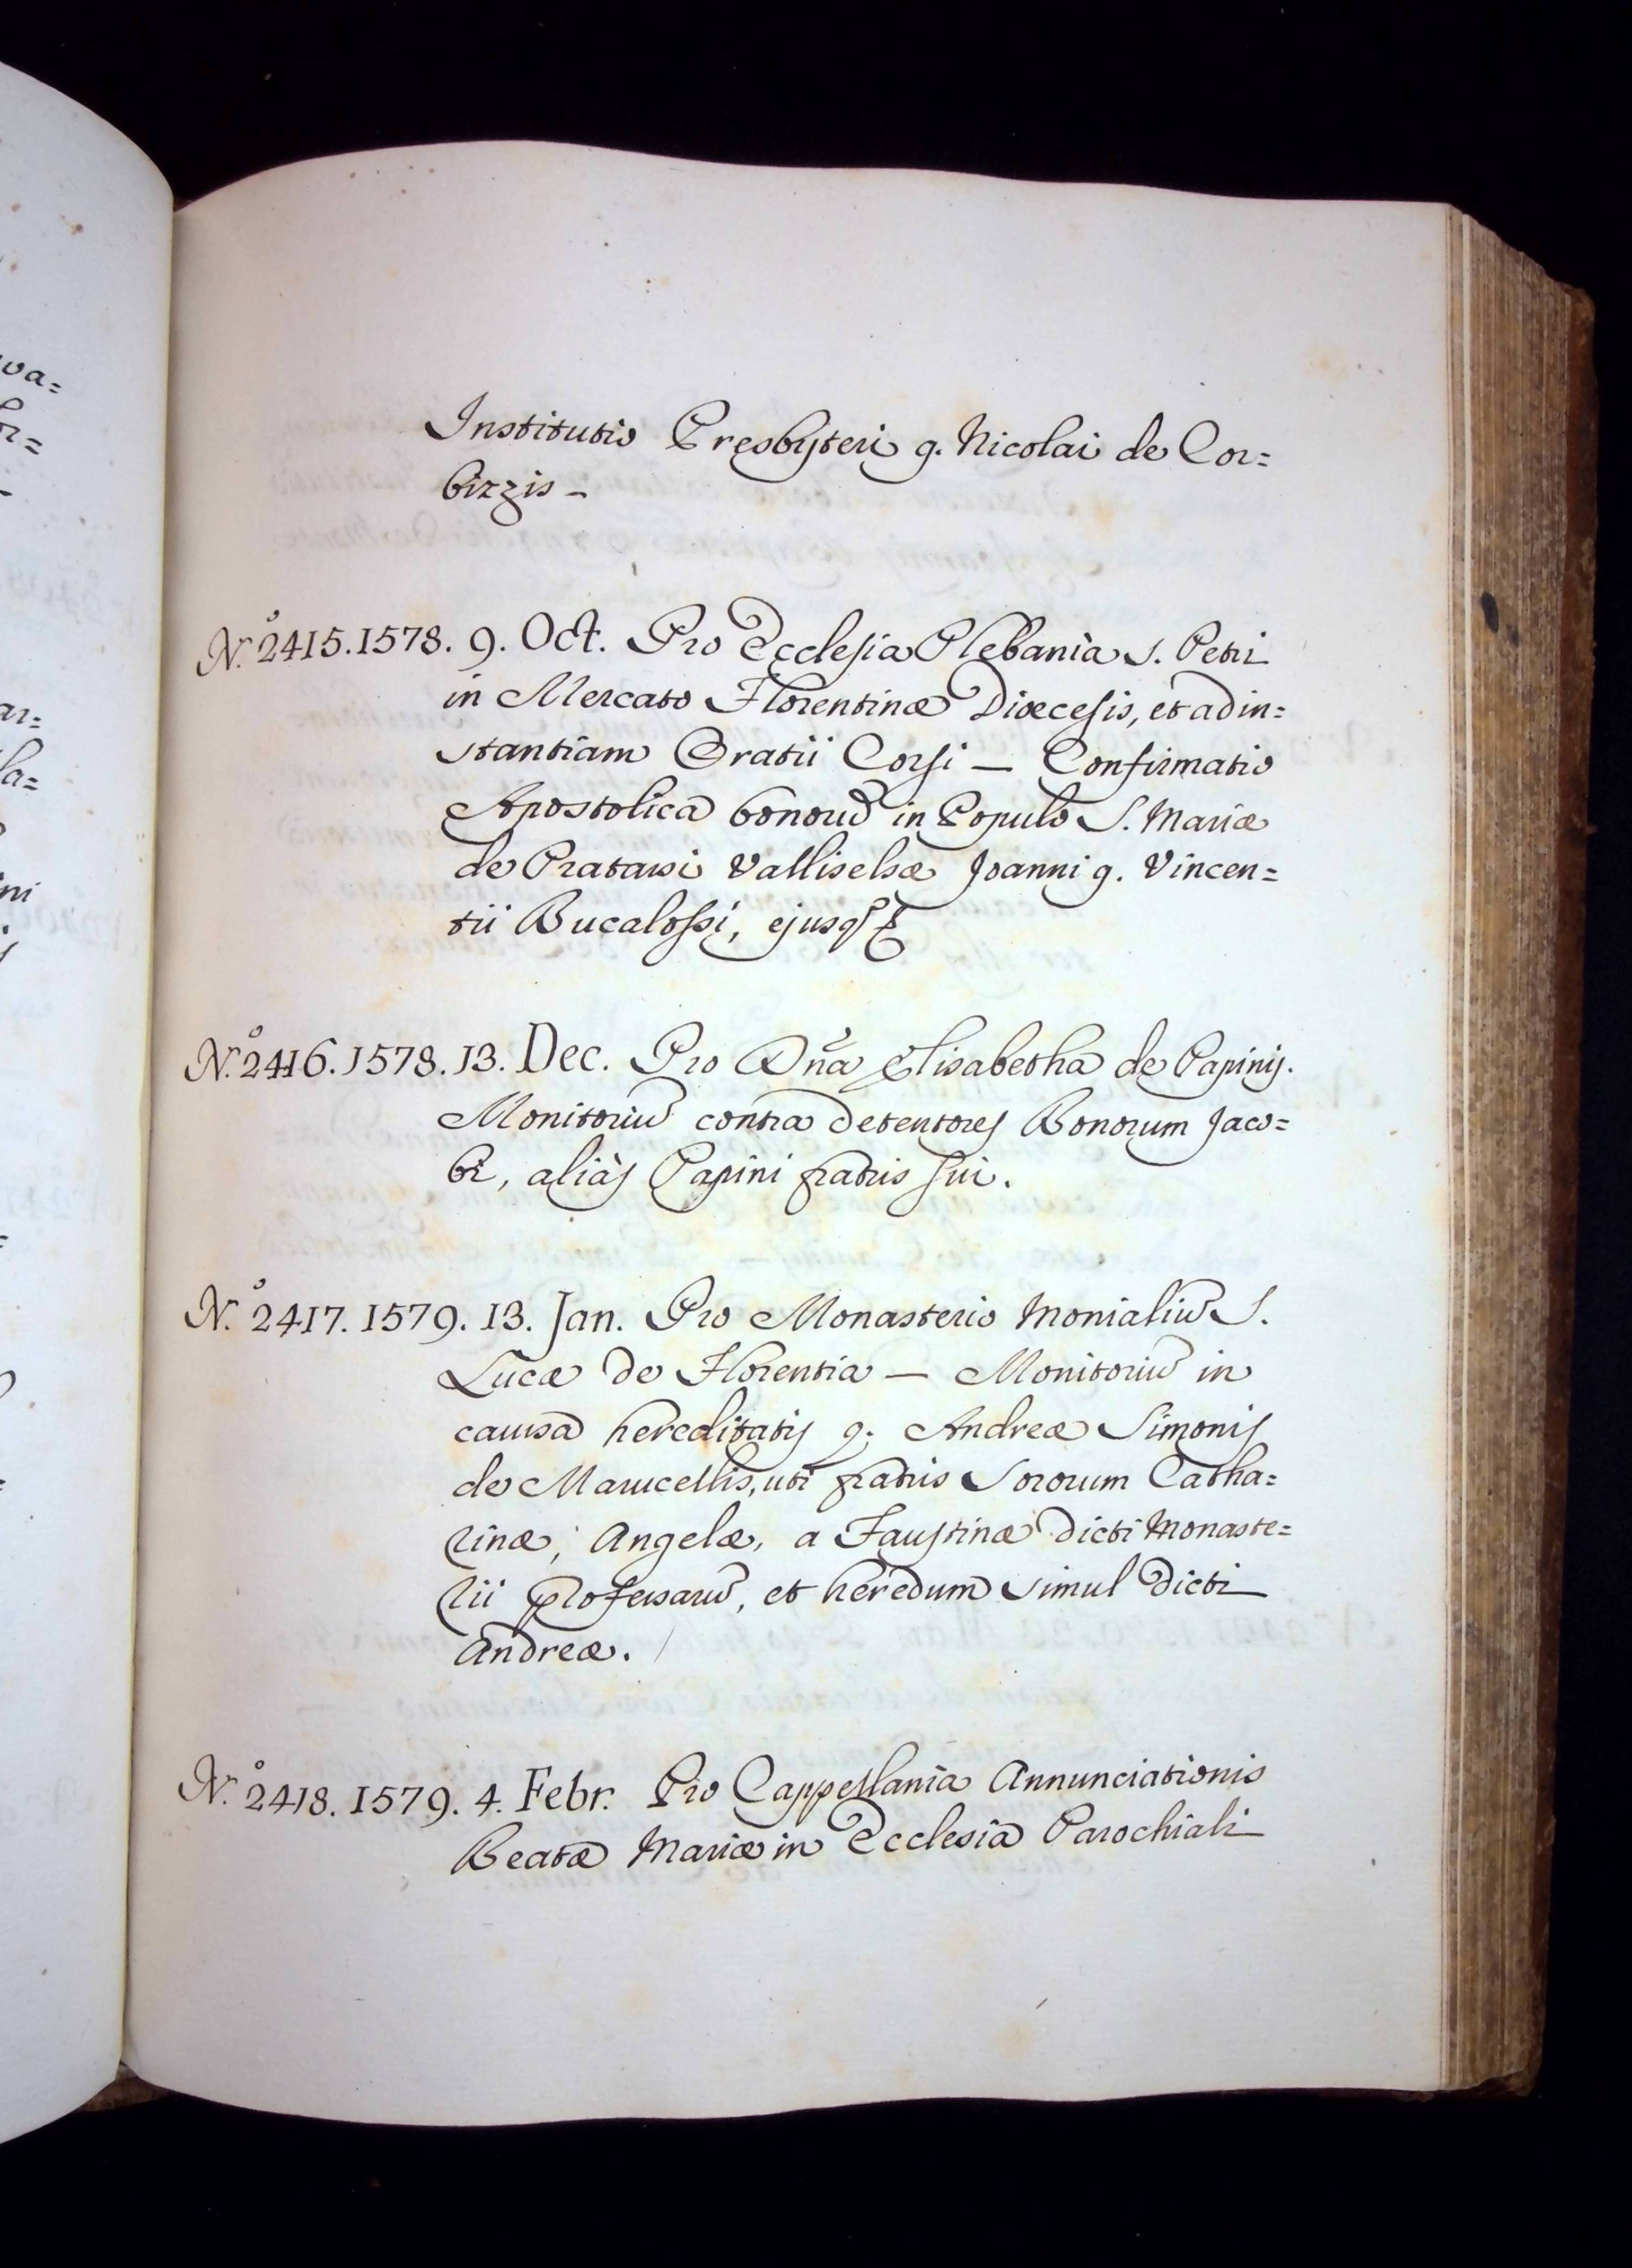 Institutio Presbyteri q. Nicolai de Cor=
bizzis –
N.º 2415. 1578. 9. Oct. Pro Ecclesia Plebania S. Petri
in Mercato Florentinæ Diœcesis, et ad in=
stantiam Oratii Corsi — Confirmatio
Apostolica bonorũ in Populo S. Mariæ
de Pratarsi Valliselsæ Joanni q. Vincen=
tii Bucalossi, ejusq
N.º 2416. 1578. 13. Dec. Pro Dña Elisabetha de Papinij.
Monitoriũ contra detentores Bonorum Jaco=
bi, aliàs Papini fratris sui.
N.º 2417. 1579. 13. Jan. Pro Monasterio Monialiũ S.
Lucæ de Florentia — Monitoriũ in
causa hereditatis q. Andreæ Simonis
de Marucellis, uti fratris Sororum Catha=
rinæ, Angelæ, a Faustinæ dicti Monaste=
rii professarũ, et heredum simul dicti
Andreæ.
N.º 2418. 1579. 4. Febr. Pro Cappellania Annunciationis
Beatæ Mariæ in Ecclesia Parochiali
va=
or=
ar=
la=
ini